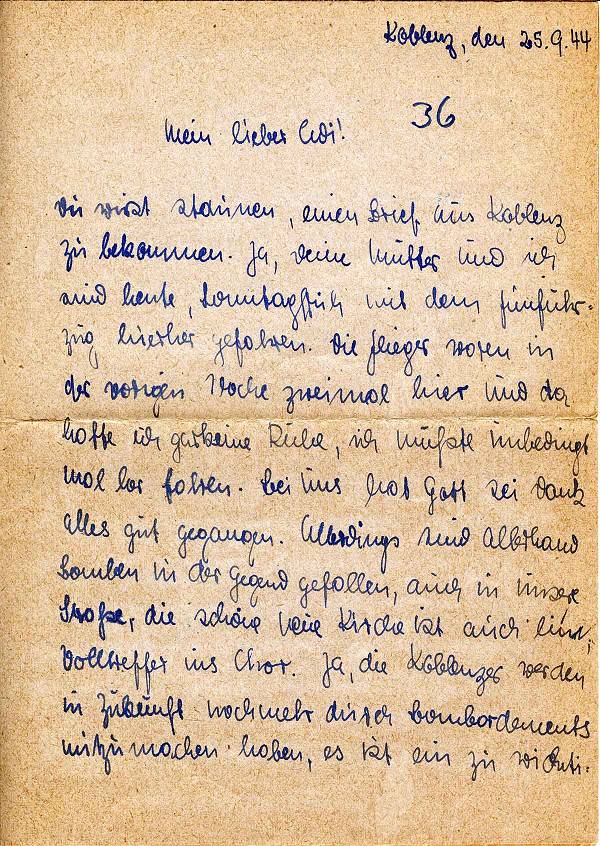 Koblenz, den 25.9.44
36
Mein lieber Edi!
Du wirst staunen, einen Brief aus Koblenz
zu bekommen. Ja, deine Mutter und ich
sind heute, Sonntagfrüh mit dem fünfuhr-
zug hierher gefahren. Die Flieger waren in
der vorigen Woche zweimal hier und da
hatte ich garkeine Ruhe, ich mußte unbedingt
mal fahren. Bei uns hat Gott sei Dank
alles gut gegangen. Allerdings sind allerhand
Bomben in der Gegend gefallen, auch in unsere
Straße, die schöne neue Kirche ist auch hin,
Volltreffer ins Chor. Ja, die Koblenzer werden
in Zukunft nochmehr durch Bombardements
mitzumachen haben, es ist ein zu wichti-